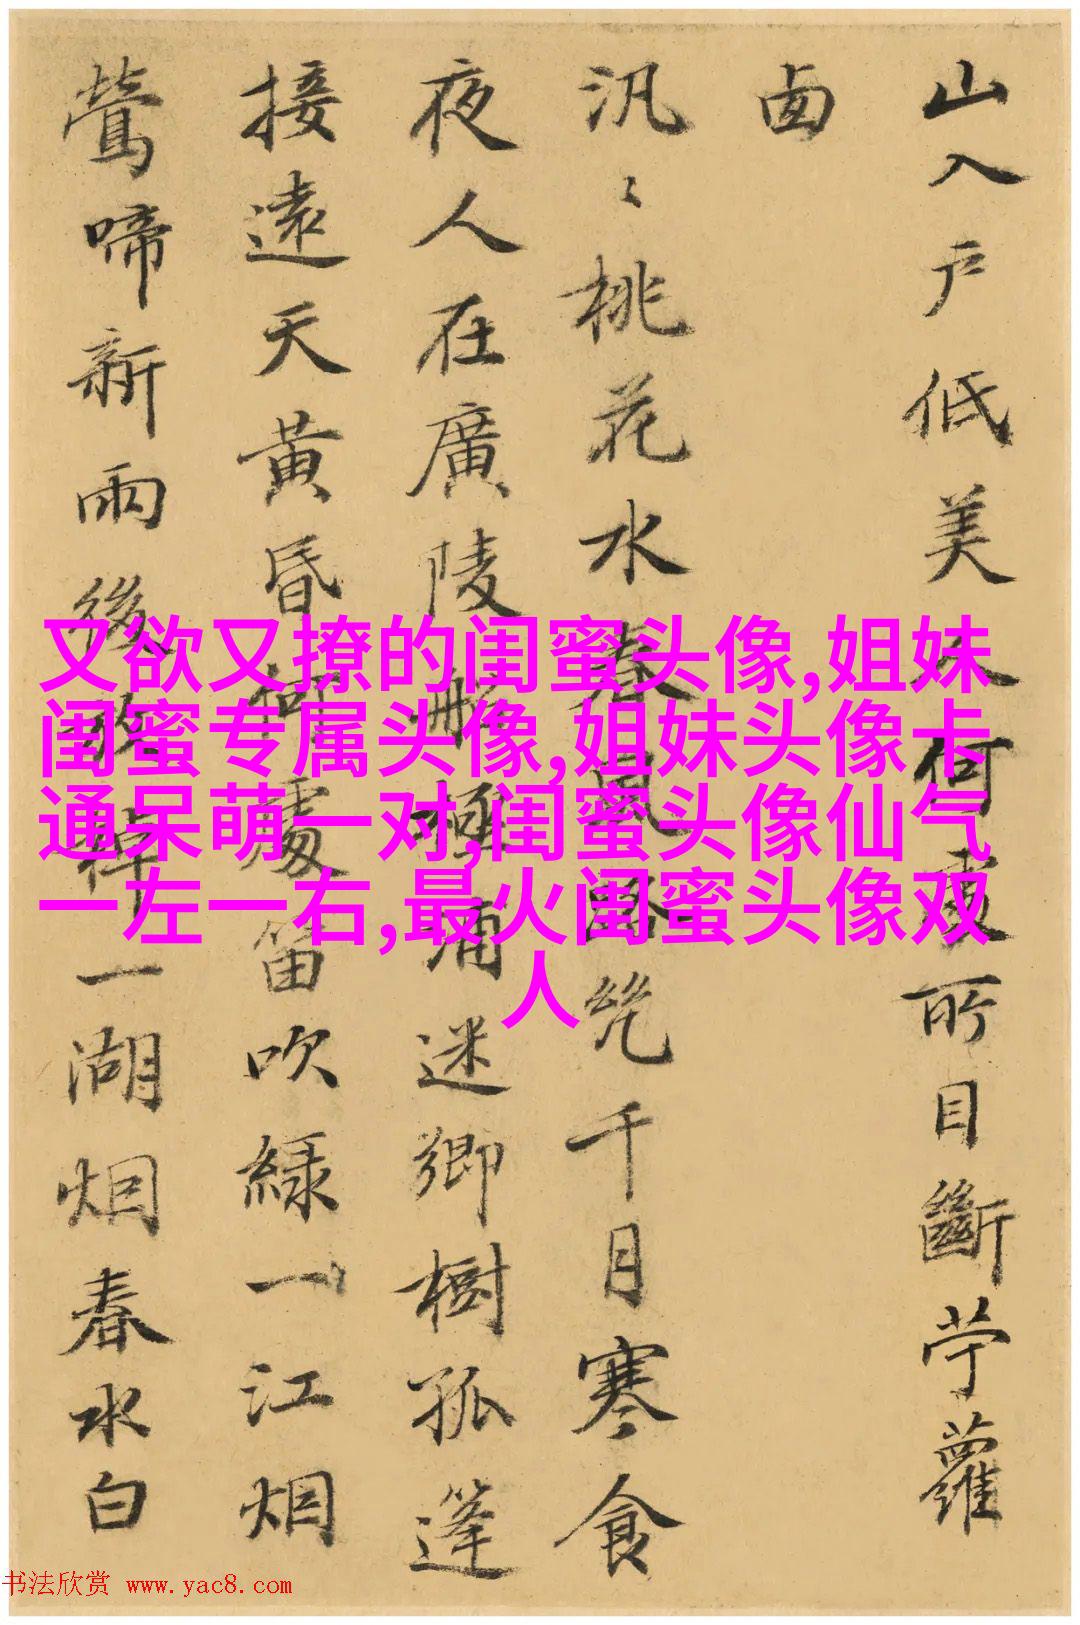 山入戶低美人何處所目斷苧蘿
西
汎〻桃花水春風路絕千月寒食
夜人在廣陵極浦迷鄉樹孤篷
接遠天黃昏何處笛吹綠一江烟
鶯啼新雨後放棹一湖烟春水白
又欲又撩的闺蜜头像,姐妹
闺蜜专属头像,姐妹头像卡
通呆萌一对,闺蜜头像仙气
一左一右,最火闺蜜头像双
人
书法欣赏 www.yac8.com